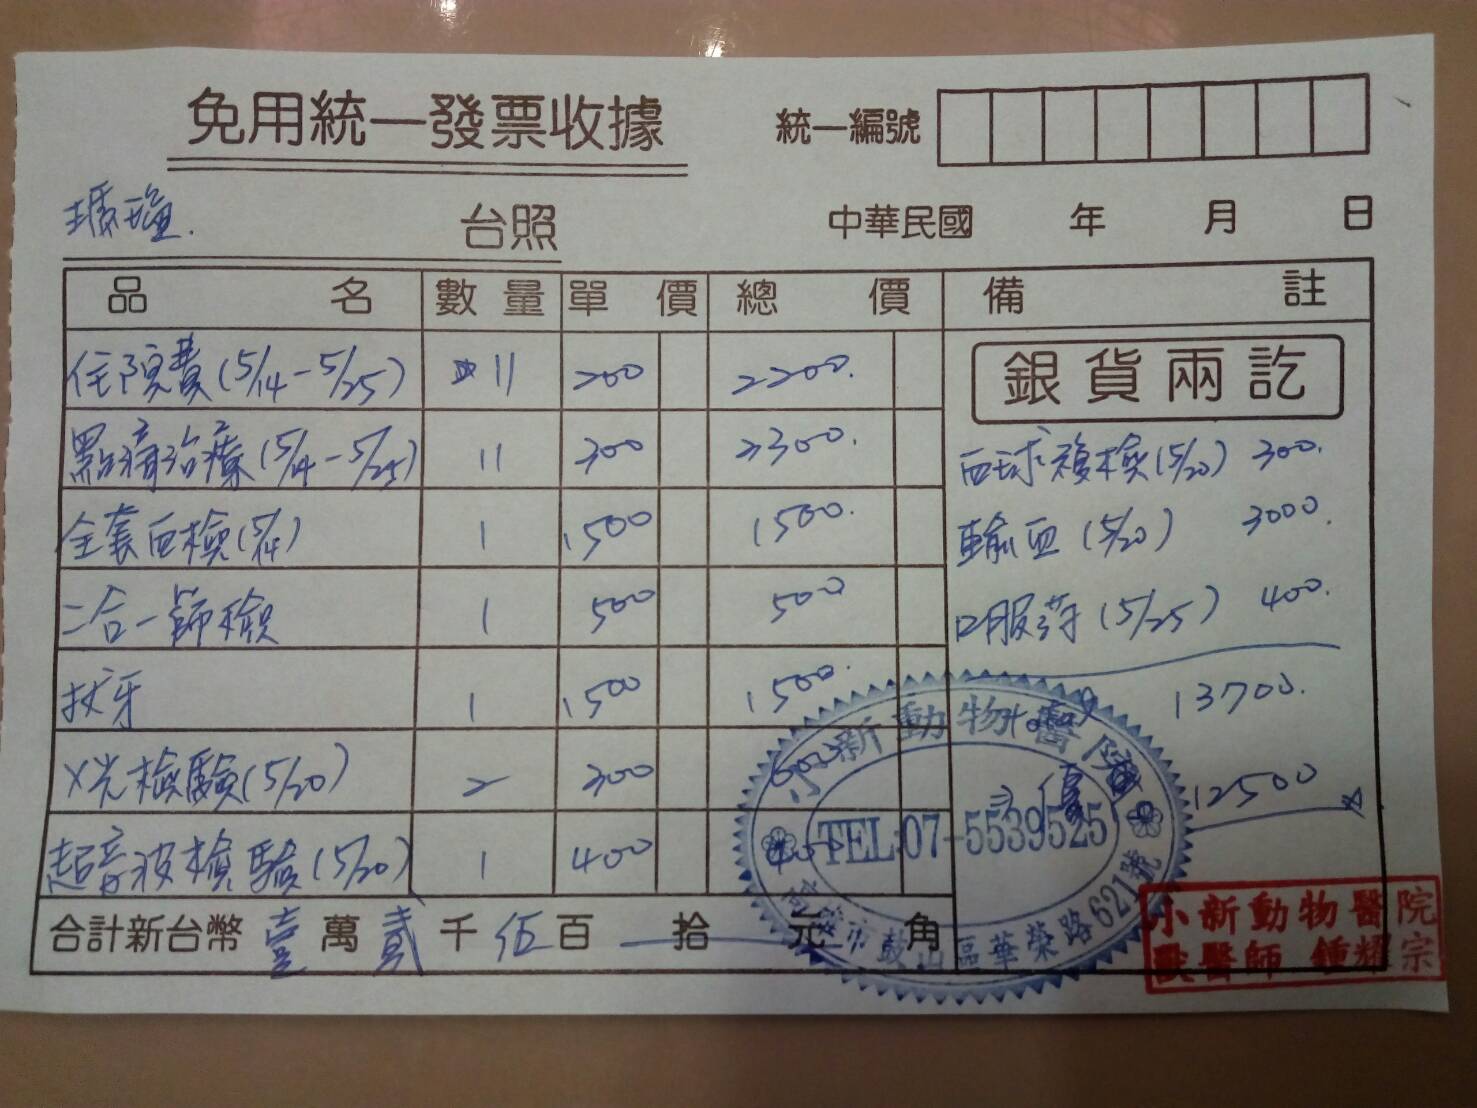 免用統一發票收據
統一編號
台照
中華民國 年 月 日
品名 數量 單價 總價 備註
住院費(5/14-5/25) 11 200 2200.
點滴治療(5/14-5/25) 11 300 3300.
全套血檢(5/14) 1 1500 1500.
二合一篩檢 1 500 500
拔牙 1 1500 1500.
X光檢驗(5/20) 2 300 600
超音波檢驗(5/20) 1 400 400
銀貨兩訖
血球複檢(5/20) 300.
輸血(5/20) 3000.
口服葯(5/25) 400.
13700.
12500
合計新台幣 壹萬 貳千 伍百 拾 元 角
小新動物醫院
TEL:07-5539525
高雄市鼓山區華榮路621號
小新動物醫院
獸醫師 鍾耀宗